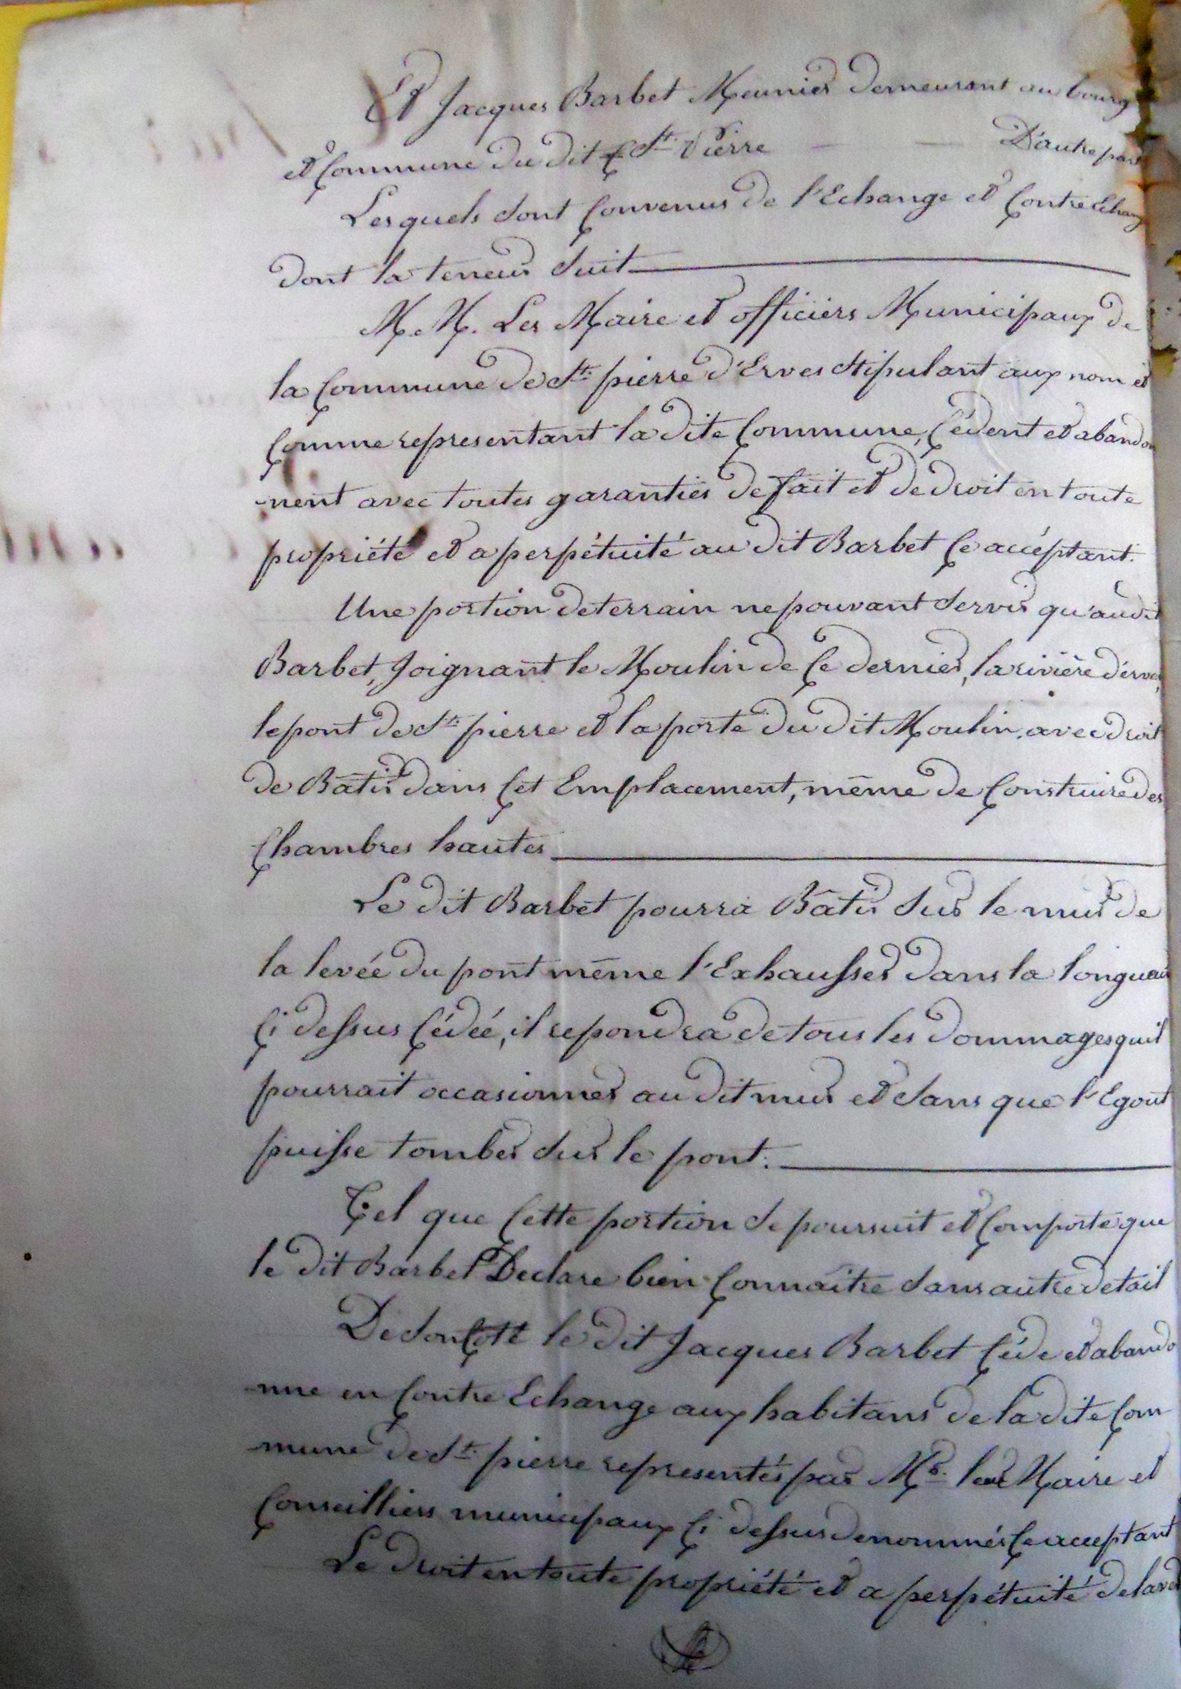 Et Jacques Barbet Meunier demeurant au bourg
et Commune du dit St. Pierre D'autre part
Lesquels sont Convenus de l'Echange et Contre Echang
dont la teneur suit
M. M. Les Maire et officiers Municipaux de
la Commune de St. pierre d'Erves stipulant aux nom et
Comme representant la dite Commune, Cédent et abandon
-nent avec toutes garanties de fait et de droit en toute
propriété et a perpétuité au dit Barbet Ce accéptant.
Une portion de terrain ne pouvant servir qu'audit
Barbet, Joignant le Moulin de Ce dernier, la rivière d'erves,
le pont de St. pierre et la porte du dit Moulin, avec droit
de Bâtir dans Cet Emplacement, même de Construire des
Chambres hautes
Le dit Barbet pourra Bâtir sur le mur de
la levée du pont même l'Exhausser dans la longueur
Ci dessus Cédéé, il repondra de tous les dommages quil
pourrait occasionner au dit mur et sans que l'Egout
puisse tomber sur le pont.
Tel que Cette portion se poursuit et Comporte que
le dit Barbet Declare bien Connaitre sans autre detail
De son Coté le dit Jacques Barbet Céde et abando
-nne en Contre Echange aux habitans de la dite Com
-mune de St. pierre representés par Mr. le Maire et
Conseilliers municipaux Ci dessus denommés Ce acceptant
Le droit en toute propriété et a perpétuité de